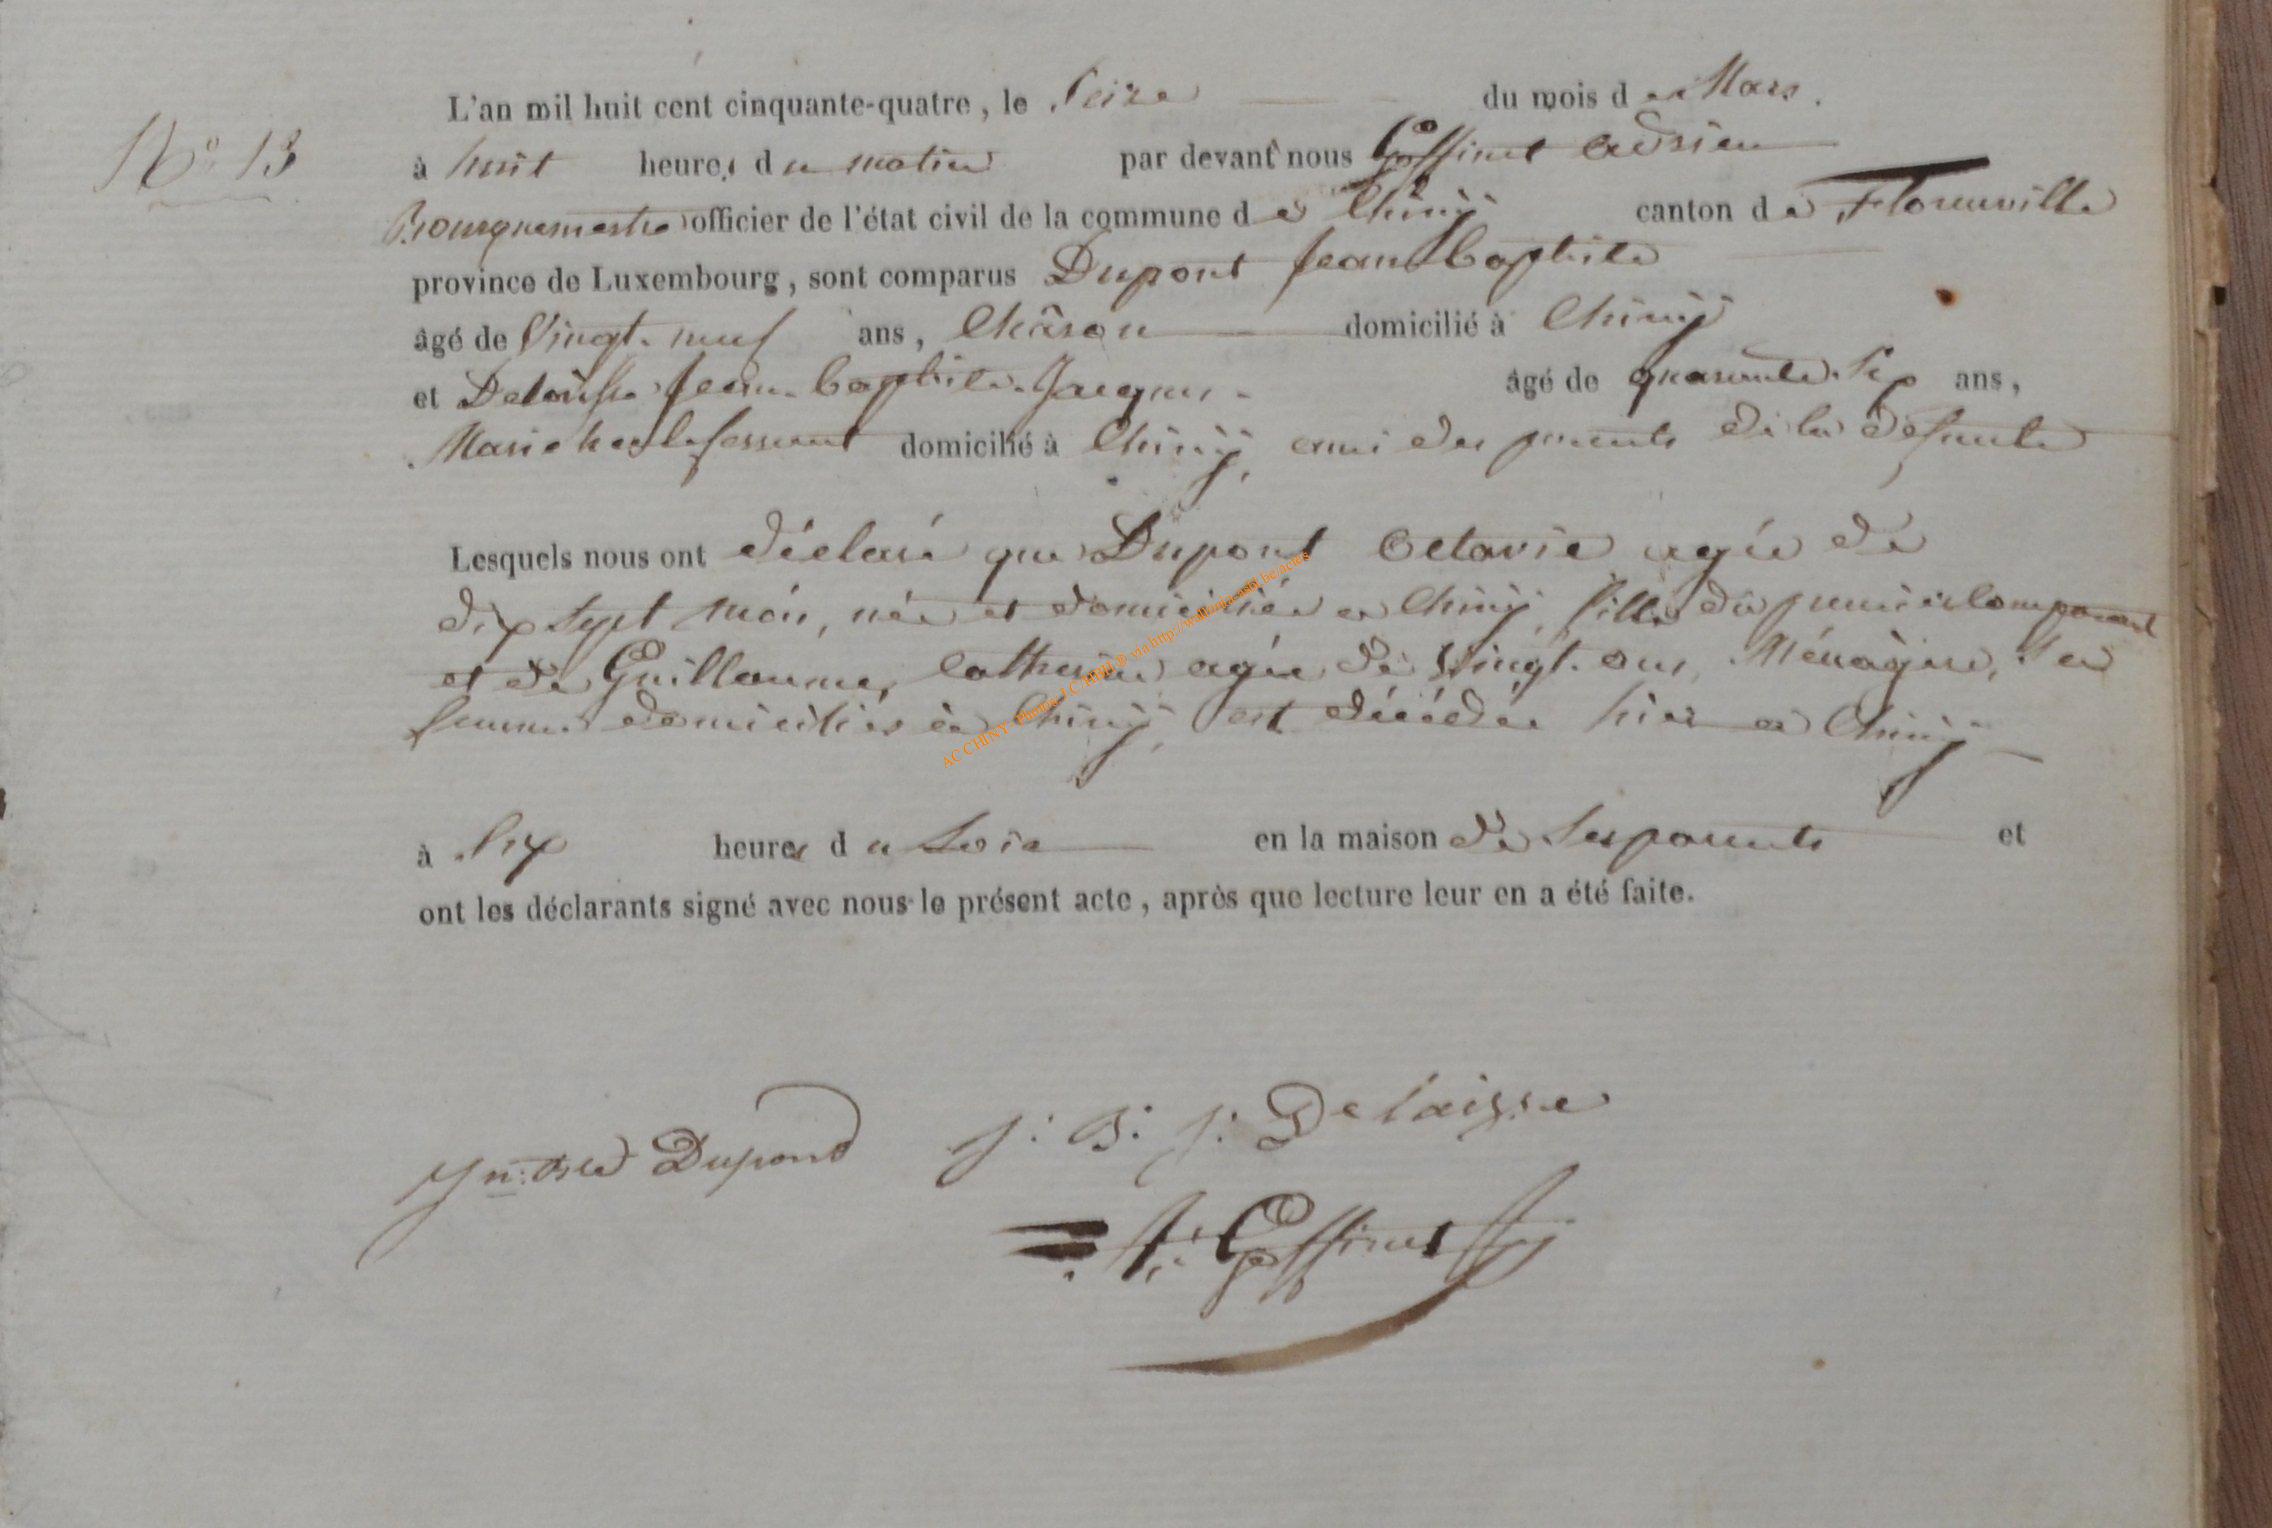 N° 13
L'an mil huit cent cinquante-quatre, le Seize du mois de Mars.
à huit heures du matin par devant nous Goffinet Adrien
Bourguemestre officier de l'état civil de la commune de Chiny canton de Florenville
province de Luxembourg, sont comparus Dupont Jean Baptiste
âgé de Vingt-neuf ans, Châron domicilié à Chiny
et Delaisse Jean-Baptiste-Jacques âgé de quarante-six ans,
Marichal ferrant domicilié à Chiny, ami des parents de la défunte
Lesquels nous ont déclaré que Dupont Octavie agée de
dix sept mois, née et domiciliée à Chiny, fille du premier Comparant
et de Guillaume, Catherine agée de Vingt-ans, Ménagère, sa
femme domiciliés à Chiny, est décédée hier à Chiny
à Six heures du Soir en la maison de Ses parents et
ont les déclarants signé avec nous le présent acte, après que lecture leur en a été faite.
Jn Bte Dupond J: B: J: Delaisse
A: Goffinet
AC CHINY - Photos J.C. via http://wallonia.asbl.be/actes